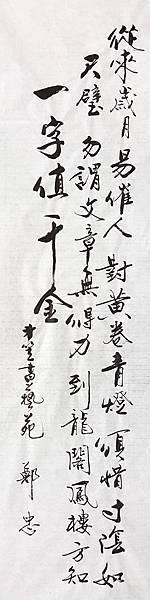 從來歲月易催人對黃卷青燈須惜寸陰如
尺璧勿謂文章無得力到龍閣鳳樓方知
一字值千金
書藝苑 鄭忠